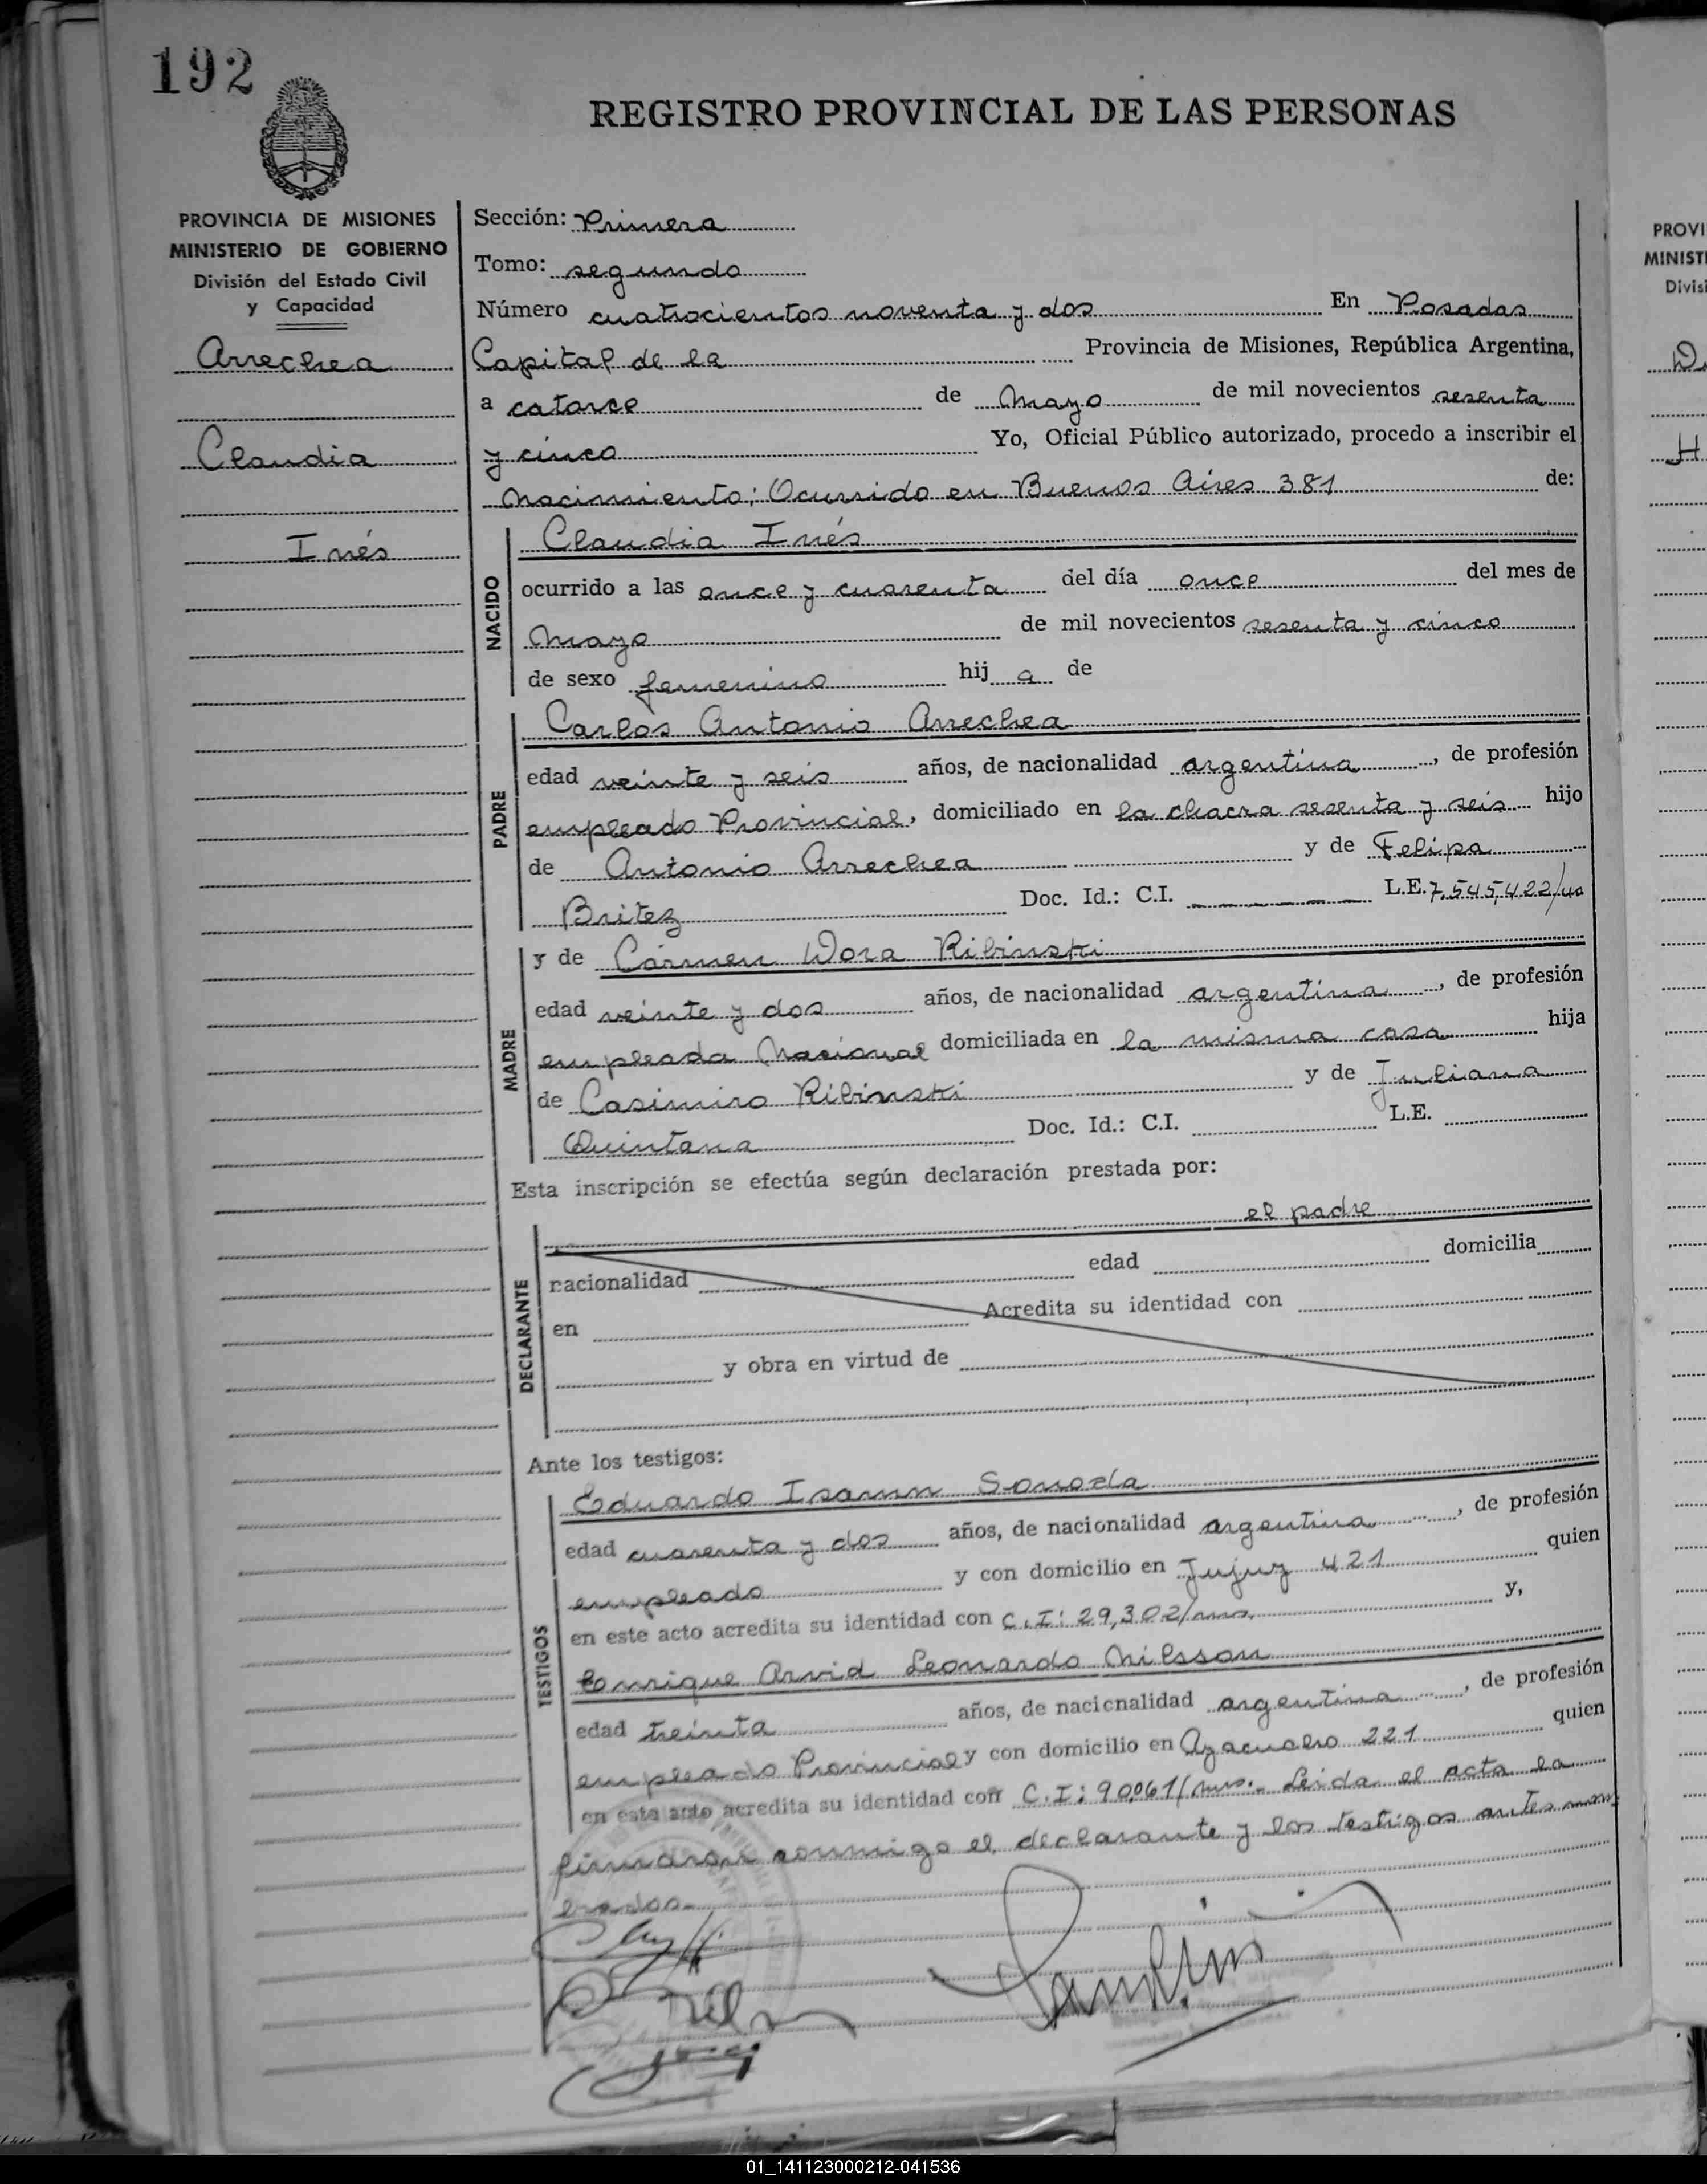 192
REGISTRO PROVINCIAL DE LAS PERSONAS
PROVINCIA DE MISIONES
MINISTERIO DE GOBIERNO
División del Estado Civil
y Capacidad
Arrechea
Claudia
Inés
Sección: Primera
Tomo: segundo
Número cuatrocientos noventa y dos En Posadas
Capital de la Provincia de Misiones, República Argentina,
a catorce de Mayo de mil novecientos sesenta
y cinco Yo, Oficial Público autorizado, procedo a inscribir el
Nacimiento; Ocurrido en Buenos Aires 381 de:
NACIDO
Claudia Inés
ocurrido a las once y cuarenta del día once del mes de
Mayo de mil novecientos sesenta y cinco
de sexo femenino hij a de
PADRE
Carlos Antonio Arrechea
edad veinte y seis años, de nacionalidad argentina, de profesión
empleado Provincial, domiciliado en la chacra sesenta y seis hijo
de Antonio Arrechea y de Felipa
Britez Doc. Id.: C.I. L.E. 7,545,422/
MADRE
y de Cármen Dora Ribinski
edad veinte y dos años, de nacionalidad argentina, de profesión
empleada Nacional domiciliada en la misma casa hija
de Casimiro Ribinski y de Juliana
Quintana Doc. Id.: C.I. L.E.
Esta inscripción se efectúa según declaración prestada por:
el padre
DECLARANTE
nacionalidad edad domicilia
en Acredita su identidad con
y obra en virtud de
Ante los testigos:
TESTIGOS
Eduardo Isamn Sonoda
edad cuarenta y dos años, de nacionalidad argentina, de profesión
empleado y con domicilio en Jujuy 421 quien
en este acto acredita su identidad con C.I: 29,302/mns. y,
Enrique Arvid Leonardo Nilsson
edad treinta años, de nacionalidad argentina, de profesión
empleado Provincial y con domicilio en Ayacucho 221 quien
en este acto acredita su identidad con C.I: 90061/mns.- Leida el acta la
firmaron conmigo el declarante y los testigos antes nom
brados.-
PROVI
MINISTI
Divisi
01_141123000212-041536